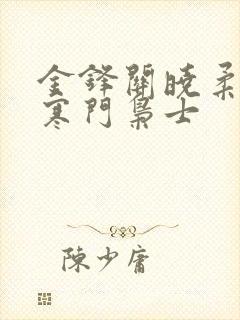 金鋒關曉柔
寒門梟士
陳少庸